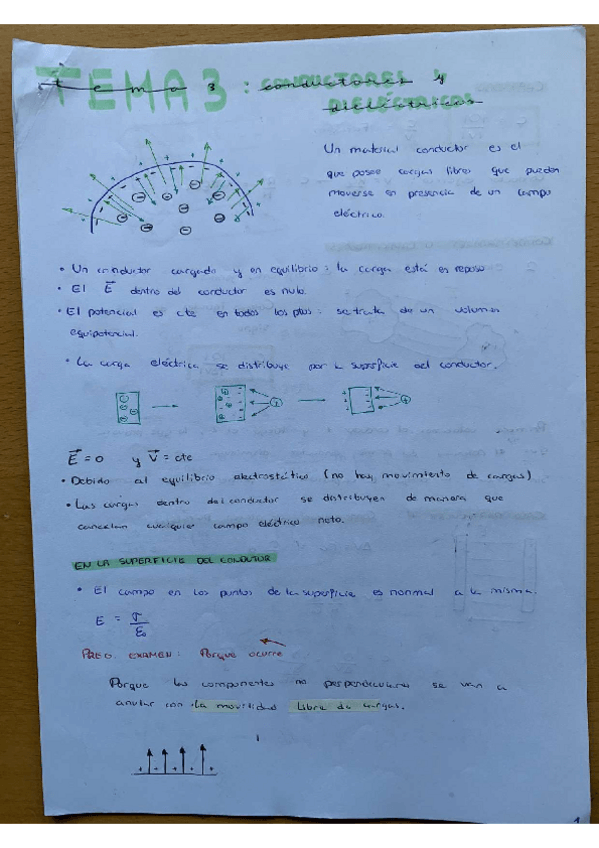 TEMA 3: CONDUCTORES Y
DIELÉCTRICOS
Un material conductor es el
que posee cargas libres que pueden
moverse en presencia de un campo
eléctrico.
• Un conductor cargado y en equilibrio: la carga está es reposo
• El E⃗ dentro del conductor es nulo.
• El potencial es cte en todos los ptos: se trata de un volumen
equipotencial.
• La carga eléctrica se distribuye por la superficie del conductor.
E⃗ = 0 y V⃗ = cte
• Debido al equilibrio electrostático (no hay movimiento de cargas)
• Las cargas dentro del conductor se distribuyen de manera que
cancelan cualquier campo eléctrico neto.
EN LA SUPERFICIE DEL CONDUTOR
• El campo en los puntos de la superficie es normal a la misma.
E = σ/ε₀
PREG. EXAMEN: Porque ocurre
Porque las componentes no perpendiculares se van a
anular con la movilidad libre de cargas.
+ + + +
1